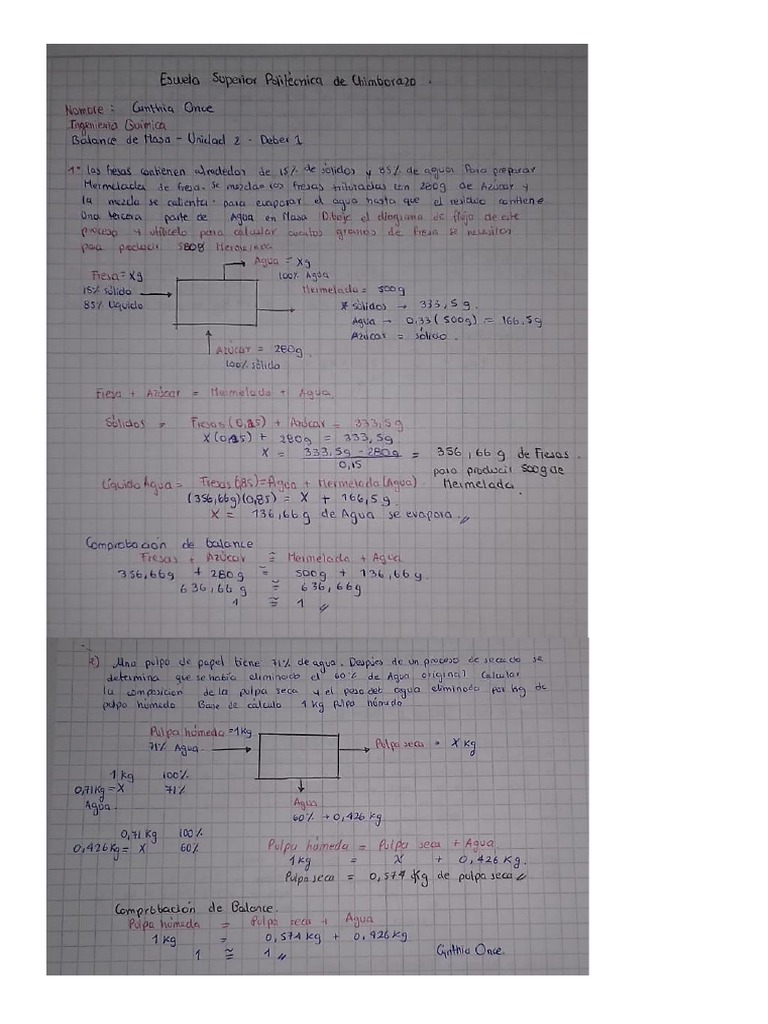 Escuela Superior Politécnica de Chimborazo.
Nombre: Cynthia Once
Ingeniería Química
Balance de Masa - Unidad 2 - Deber 1
1° Las fresas contienen alrededor de 15% de sólidos y 85% de agua. Para preparar
Mermelada de fresa. Se mezclan las fresas trituradas con 280g de Azúcar y
la mezcla se calienta para evaporar el agua hasta que el residuo contiene
una tercera parte de Agua en Masa. Dibuje el diagrama de flujo de este
proceso y utilícelo para calcular cuantos gramos de fresa se necesitan
para producir Mermelada
Agua = Xg
100% Agua
Fresa = Xg
15% sólido
85% Líquido
Mermelada = 500g
* sólidos → 333,5g.
Agua → 0,33(500g) = 166,5g
Azúcar = sólido.
Azúcar = 280g.
100% sólido
Fresa + Azúcar = Mermelada + Agua.
Sólidos = Fresas(0,15) + Azúcar = 333,5g
X(0,15) + 280g = 333,5g
X = 333,5g - 280g = 356,66 g de Fresas.
0,15
para producir 500g de
Mermelada.
Líquido Agua = Fresas(,85) = Agua + Mermelada(Agua)
(356,66g)(0,85) = X + 166,5g.
X = 136,66g de Agua se evapora.
Comprobación de balance
Fresas + Azúcar ≅ Mermelada + Agua
356,66g + 280g = 500g + 136,66g.
636,66g ≅ 636,66g
1 ≅ 1
2) Una pulpa de papel tiene 71% de agua. Después de un proceso de secado se
determina que se había eliminado el 60% de Agua original. Calcular
la composición de la pulpa seca y el peso del agua eliminada por kg de
pulpa húmeda. Base de cálculo 1 kg pulpa húmeda
Pulpa húmeda = 1Kg
71% Agua
Pulpa seca = X Kg
1Kg 100%
0,71Kg = X 71%
Agua.
Agua
60% → 0,426 Kg
0,71 Kg 100%
0,426Kg = X 60%
Pulpa húmeda = Pulpa seca + Agua.
1Kg = X + 0,426 Kg.
Pulpa seca = 0,574 Kg de pulpa seca
Comprobación de Balance.
Pulpa húmeda = Pulpa seca + Agua
1Kg = 0,574 Kg + 0,426 Kg
1 ≅ 1
Cynthia Once.